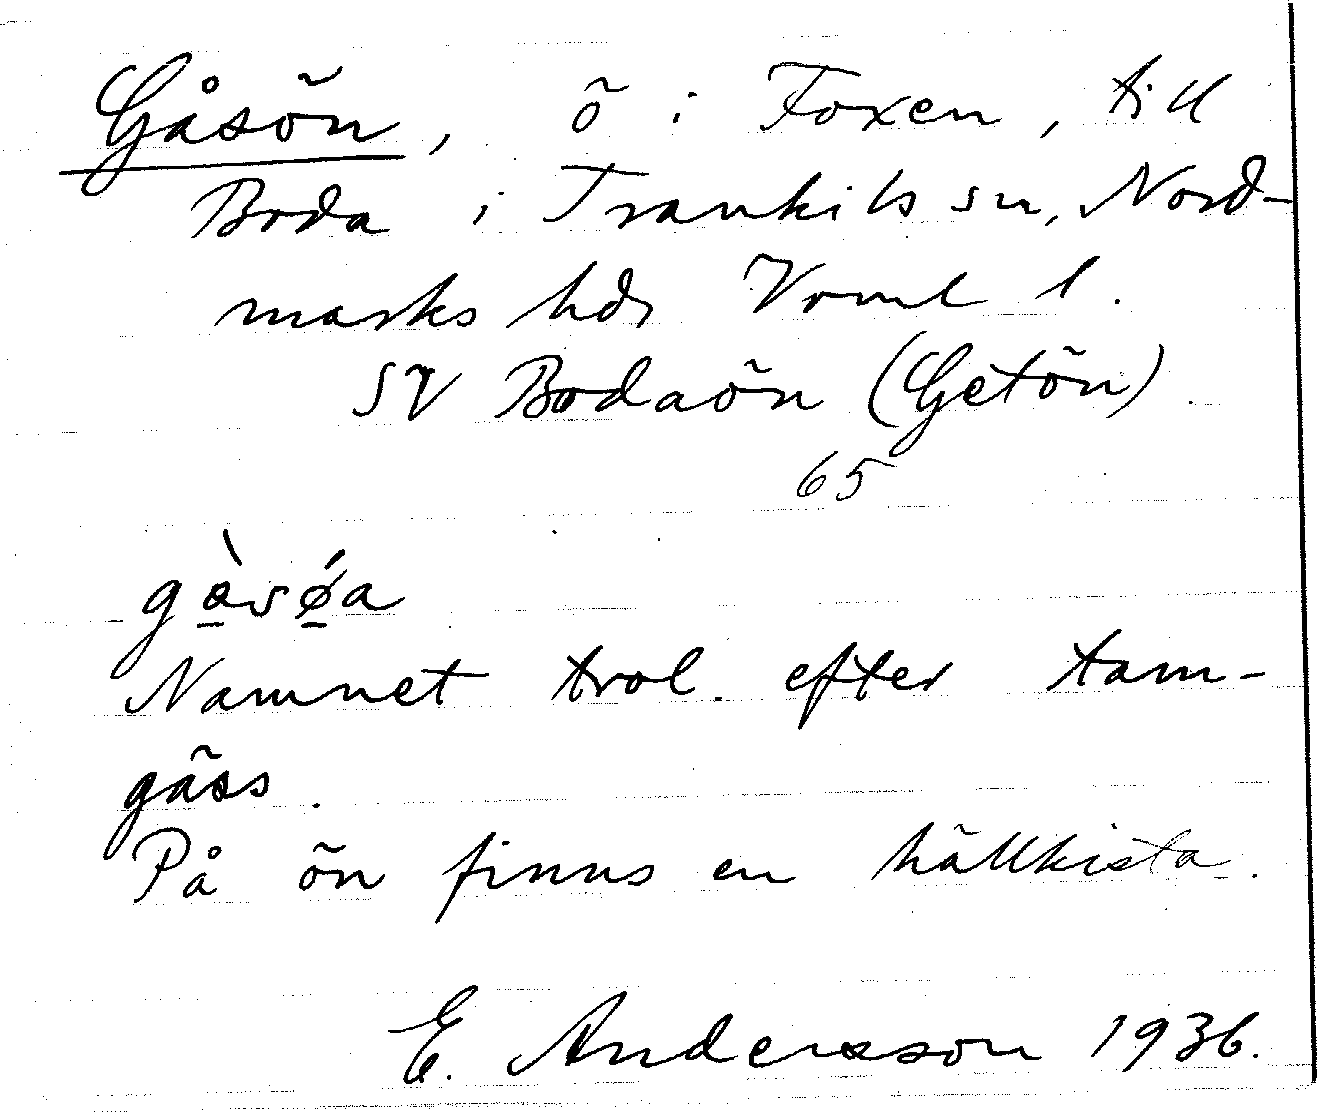 Gåsön, ö i Foxen, till
Boda i Trankils sn, Nord-
marks hds Vrml l.
SV Bodaön (Getön)
65
gåsøa
Namnet trol. efter tam-
gäss.
På ön finns en hällkista.
E. Andersson 1936.